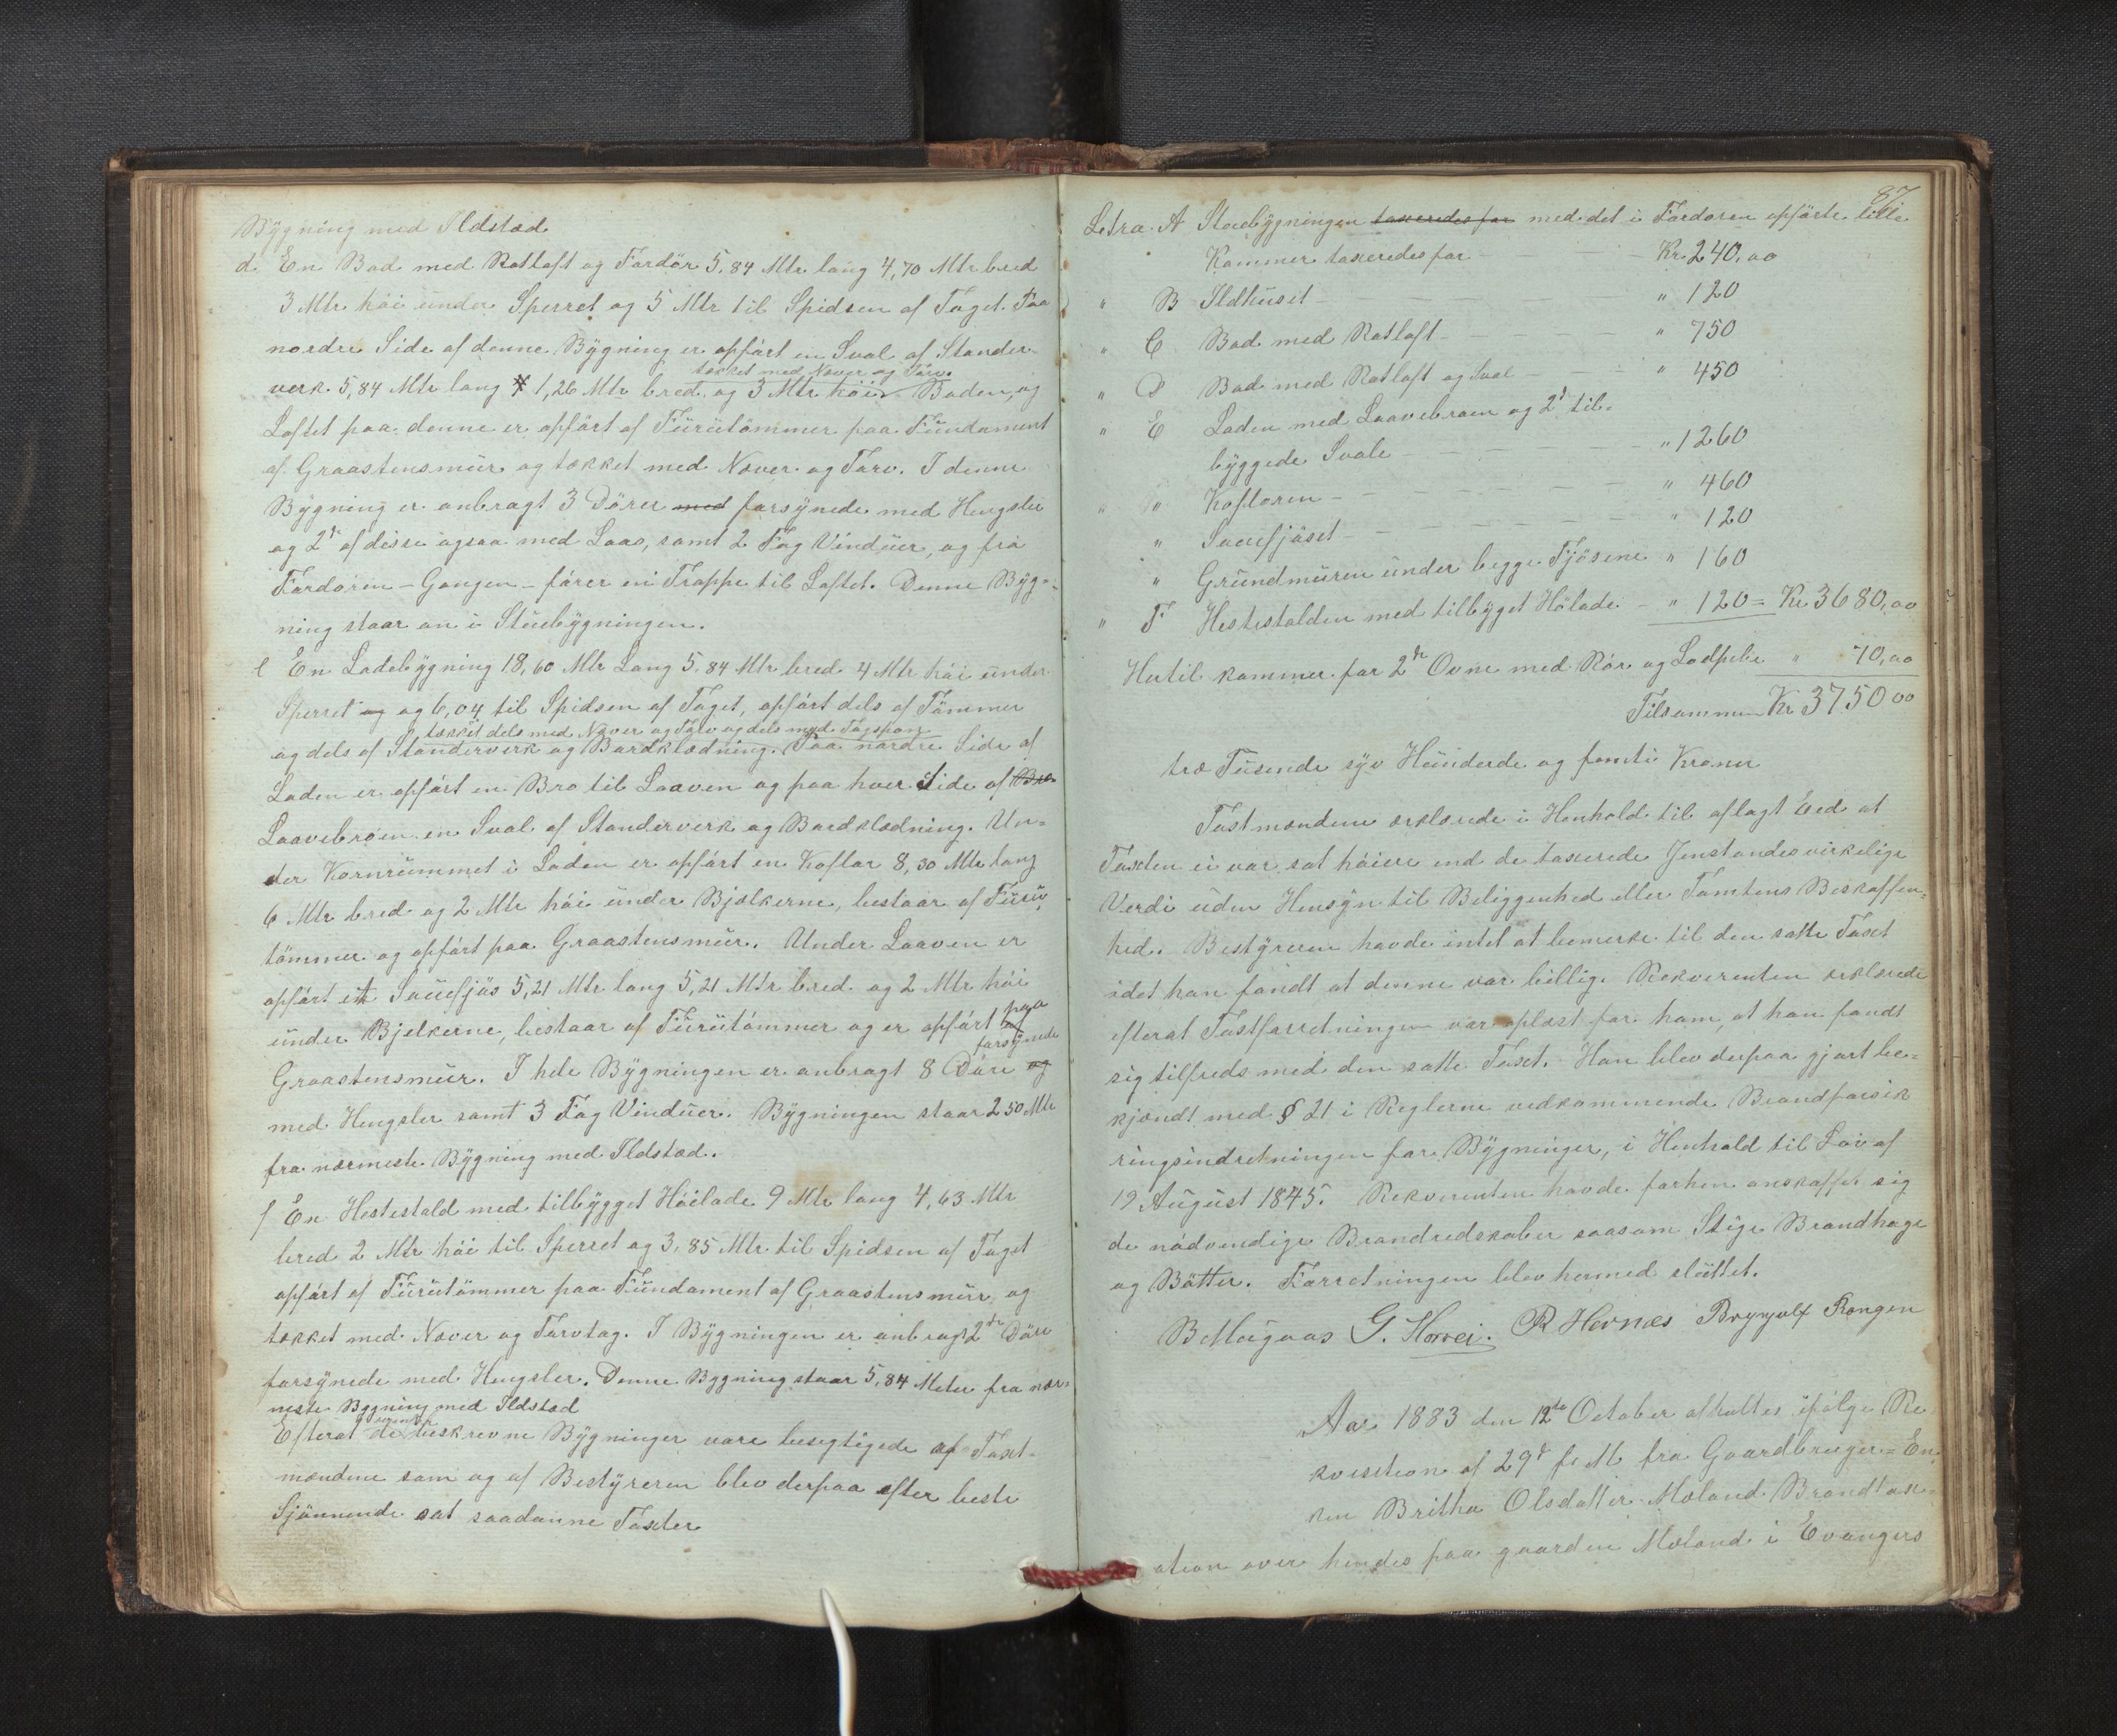 Bygning med Ildstæd
d. En Bod med Rotloft og Fordör 5,84 Mtr lang 4,70 Mtr bred
3 Mtr höi under Sperret og 5 Mtr til Spidsen af Taget. Paa
nordre Side af denne Bygning er opfört en Sval af Stander-
tækket med Næver og Törv.
verk 5,84 Mtr lang 1,26 Mtr bred og 3 Mtr höi. Boden, og
Loftet paa denne er opfört af Furutömmer paa Fundament
af Graastensmur og tækket med Næver og Törv. I denne
Bygning er anbragt 3 Dörer med forsynede med Hengsler
og 2de af disse ogsaa med Laas, samt 2 Fag Vinduer, og fra
Fordören - Gangen - förer en Trappe til Loftet. Denne Byg-
ning staar an i Stuebygningen.
e En Ladebygning 18,60 Mtr Lang 5,84 Mtr bred 4 Mtr höi under
Sperret og og 6,04 til Spidsen af Taget, opfört dels af Tömmer
tækket dels med Næver og Törv og dels med Tagspon
og dels af Standerverk og Bordklædning. Paa nordre Side af
Laden er opfört en Bro til Laaven og paa hver Side af Bro
Laavebroen en Sval af Standerverk og Bordklædning. Un-
der Kornrummet i Laden er opfört en Koflor 8,30 Mtr lang
6 Mtr bred og 2 Mtr höi under Bjælkerne, bestaar af Furu-
tömmer og opfört paa Graastensmur. Under Laaven er
opfört et Sauefjös 5,21 Mtr lang 5,21 Mtr bred og 2 Mtr höi
under Bjelkerne, bestaar af Furutömmer og er opfört paa
forsynede
Graastensmur. I hele Bygningen er anbragt 8 Döre og
med Hengsler samt 3 Fag Vinduer. Bygningen staar 2 50 Mtr
fra nærmeste Bygning med Ildstæd.
f En Hestestald med tilbygget Höilade 9 Mtr lang 4,63 Mtr
bred 2 Mtr höi til Sperret og 3,85 Mtr til Spidsen af Taget
opfört af Furutömmer paa Fundament af Graastensmur og
tækket med Næver og Törvtag. I Bygningen er anbragt 2de Döre
forsynede med Hengsler. Denne Bygning staar 5,84 Meter fra nær-
meste Bygning med Ildstæd
Efterat de beskrevne Bygninger vare besigtigede af Taxt-
mændene som og af Bestyreren blev derpaa efter beste
Skjönnende sat saadanne Taxter
87
Letra A Stuebygningen taxeredes for med det i Fordören opförte lille
Kammer taxeredes for - Kr 240,00
" B Ildhuset " 120
" C Bod med Rotloft - " 750
" D Bod med Rotloft og Sval - " 450
" E Laden med Laavebroen og 2de til-
byggede Svale - " 1260
" " Kofloren - " 460
" Sauefjöset - " 120
" Grundmuren under begge Fjösene " 160
" F Hestestalden med tilbyget Hölade - " 120 = Kr 3680,00
Hertil kommer for 2de Ovne med Rör og Lodpibe " 70,00
Tilsammen Kr 3750 00
tre Tusende syv Hunderde og femti Kroner
Taxtmændene erklærede i Henhold til aflagt Eed at
Taxten ei var sat höiere end de taxerede Jenstandes virkelige
Verdi uden Hensyn til Beliggenhed eller Tomtens Beskaffen-
hed. Bestyreren havde intet at bemerke til den satte Taxt
idet han fandt at denne var billig. Rekvirenten erklærede
efterat Taxtforretningen var oplæst for ham, at han fandt
sig tilfreds med den satte Taxt. Han blev derpaa gjort be-
kjendt med § 21 i Reglerne vedkommende Brandforsik
ringsindretningen for Bygninger, i Henhold til Lov af
19 August 1845. Rekvirenten havde forhen anskaffet sig
de nödvendige Brandredskaber saasom Stige Brandhage
og Bötter. Forretningen blev hermed sluttet.
G. Horvei. R Hernæs Brynjulf Rongen
Aar 1883 den 12te October afholtes ifölge Re
kvisition af 29de f. M fra Gaardbruger-En-
ken Britha Olsdatter Moland Brandtax-
ation over hendes paa gaarden Moland i Evangers